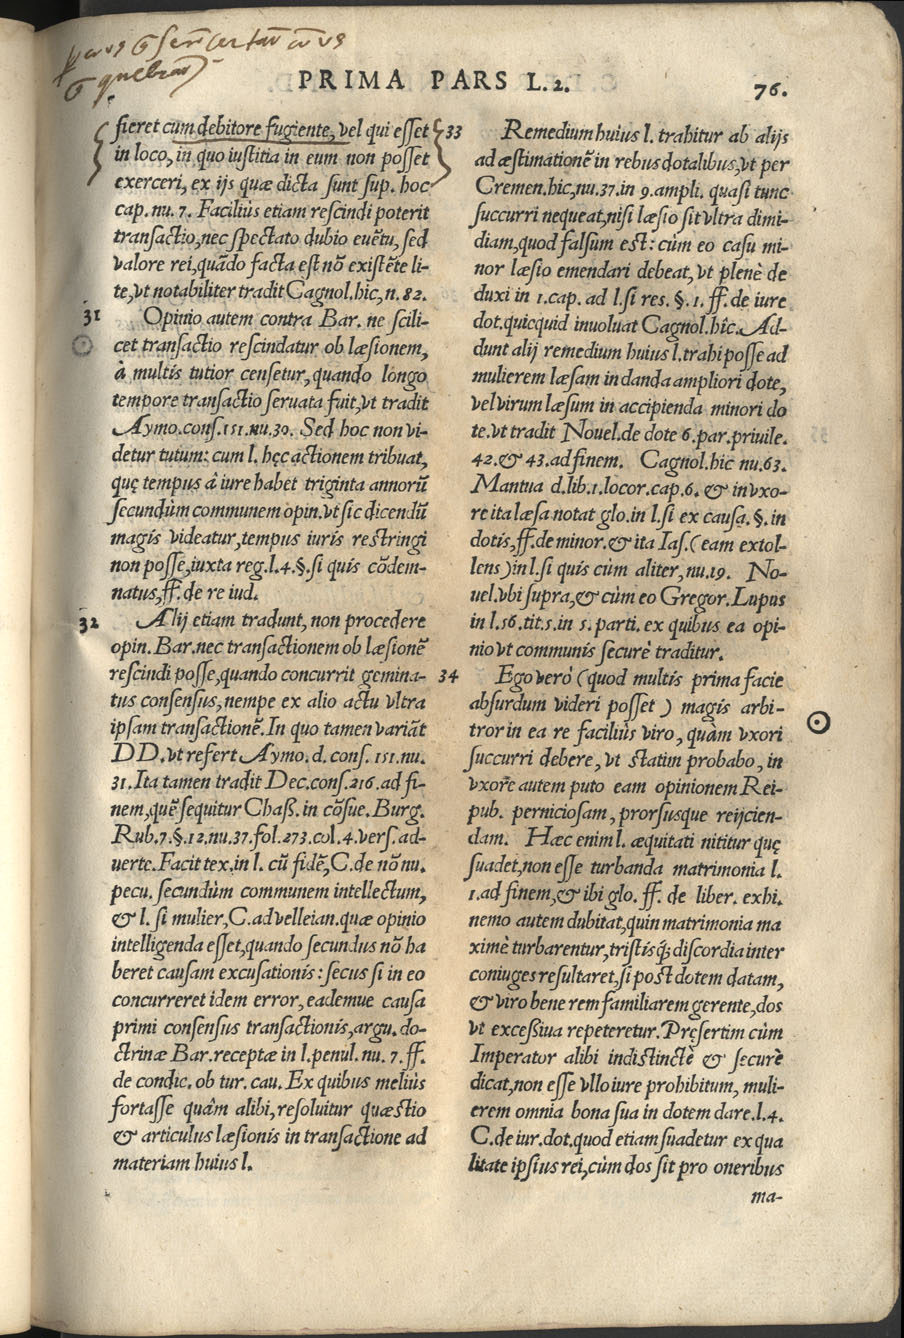 PRIMA PARS L.2.
76.
fieret cum debitore fugiente, vel qui esset
in loco, in quo iustitia in eum non posset
exerceri, ex ijs quæ dicta sunt sup. hoc
cap. nu. 7. Faciliùs etiam rescindi poterit
transactio, nec spectato dubio euẽtu, sed
valore rei, quãdo facta est nõ existẽte li-
te, vt notabiliter tradit Cagnol. hic, n. 82.
31 Opinio autem contra Bar. ne scili-
cet transactio rescindatur ob læsionem,
à multis tutior censetur, quando longo
tempore transactio seruata fuit, vt tradit
Aymo. cons. 151. nu. 30. Sed hoc non vi-
detur tutum: cum l. hęc actionem tribuat,
quę tempus â iure habet triginta annorũ
secundùm communem opin. vt sic dicendũ
magis videatur, tempus iuris restringi
non posse, iuxta reg. l. 4. §. si quis cõdem-
natus, ff. de re iud.
32 Alij etiam tradunt, non procedere
opin. Bar. nec transactionem ob læsionẽ
rescindi posse, quando concurrit gemina-
tus consensus, nempe ex alio actu vltra
ipsam transactionẽ. In quo tamen variãt
DD. vt refert Aymo. d. cons. 151. nu.
31. Ita tamen tradit Dec. cons. 216. ad fi-
nem, quẽ sequitur Chaß. in cõsue. Burg.
Rub. 7. §. 12. nu. 37. fol. 273. col. 4. vers. ad-
uerte. Facit tex. in l. cũ fidẽ, C. de nõ nu.
pecu. secundùm communem intellectum,
& l. si mulier, C. ad velleian. quæ opinio
intelligenda esset, quando secundus nõ ha
beret causam excusationis: secus si in eo
concurreret idem error, eademue causa
primi consensus transactionis, argu. do-
ctrinæ Bar. receptæ in l. penul. nu. 7. ff.
de condic. ob tur. cau. Ex quibus meliùs
fortasse quâm alibi, resoluitur quæstio
& articulus læsionis in transactione ad
materiam huius l.
33 Remedium huius l. trahitur ab alijs
ad æstimationẽ in rebus dotalibus, vt per
Cremen. hic, nu. 37. in 9. ampli. quasi tunc
succurri nequeat, nisi læsio sit vltra dimi-
diam, quod falsum est: cùm eo casu mi-
nor læsio emendari debeat, vt plenè de
duxi in 1. cap. ad l. si res. §. 1. ff. de iure
dot. quicquid inuoluat Cagnol. hîc. Ad-
dunt alij remedium huius l. trahi posse ad
mulierem læsam in danda ampliori dote,
vel virum læsum in accipienda minori do
te. vt tradit Nouel. de dote 6. par. priuile.
42. & 43. ad finem. Cagnol. hic nu. 63.
Mantua d. lib. 1. locor. cap. 6. & in vxo-
re ita læsa notat glo. in l. si ex causa. §. in
dotis, ff. de minor. & ita Ias. (eam extol-
lens) in l. si quis cùm aliter, nu. 19. No-
uel. vbi supra, & cùm eo Gregor. Lupus
in l. 56. tit. 5. in 5. parti. ex quibus ea opi-
nio vt communis securè traditur.
34 Ego verò (quod multis prima facie
absurdum videri posset) magis arbi-
tror in ea re faciliùs viro, quàm vxori
succurri debere, vt statim probabo, in
vxore autem puto eam opinionem Rei-
pub. perniciosam, prorsusque reijcien-
dam. Hæc enim l. æquitati nititur quę
suadet, non esse turbanda matrimonia l.
1. ad finem, & ibi glo. ff. de liber. exhi.
nemo autem dubitat, quin matrimonia ma
ximè turbarentur, tristisq́; discordia inter
coniuges resultaret, si post dotem datam,
& viro bene rem familiarem gerente, dos
vt exceßiua repeteretur. Pręsertim cùm
Imperator alibi indistinctè & securè
dicat, non esse vllo iure prohibitum, muli-
erem omnia bona sua in dotem dare. l. 4.
C. de iur. dot. quod etiam suadetur ex qua
litate ipsius rei, cùm dos sit pro oneribus
ma-